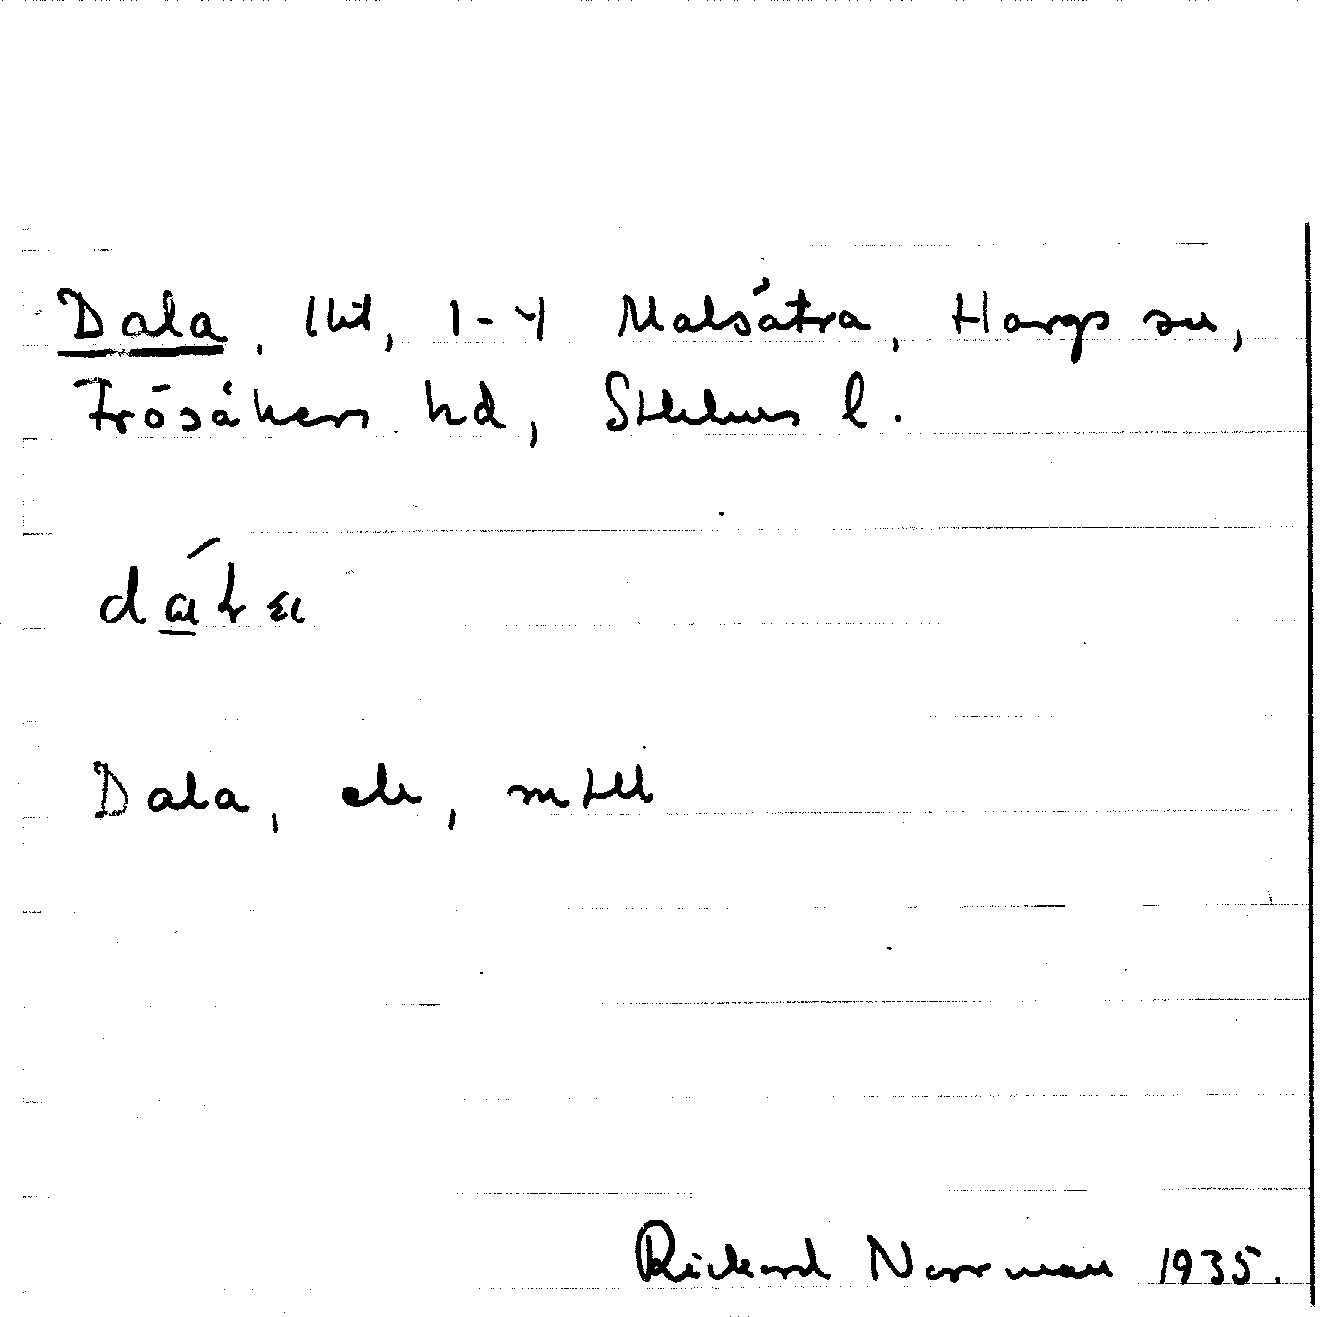 Dala, lht, 1-4 Malsåtra, Hargs sn,
Frösåkers hd, Sthlms l.
Dala, ek, mtll
Rickard Norrman 1935.